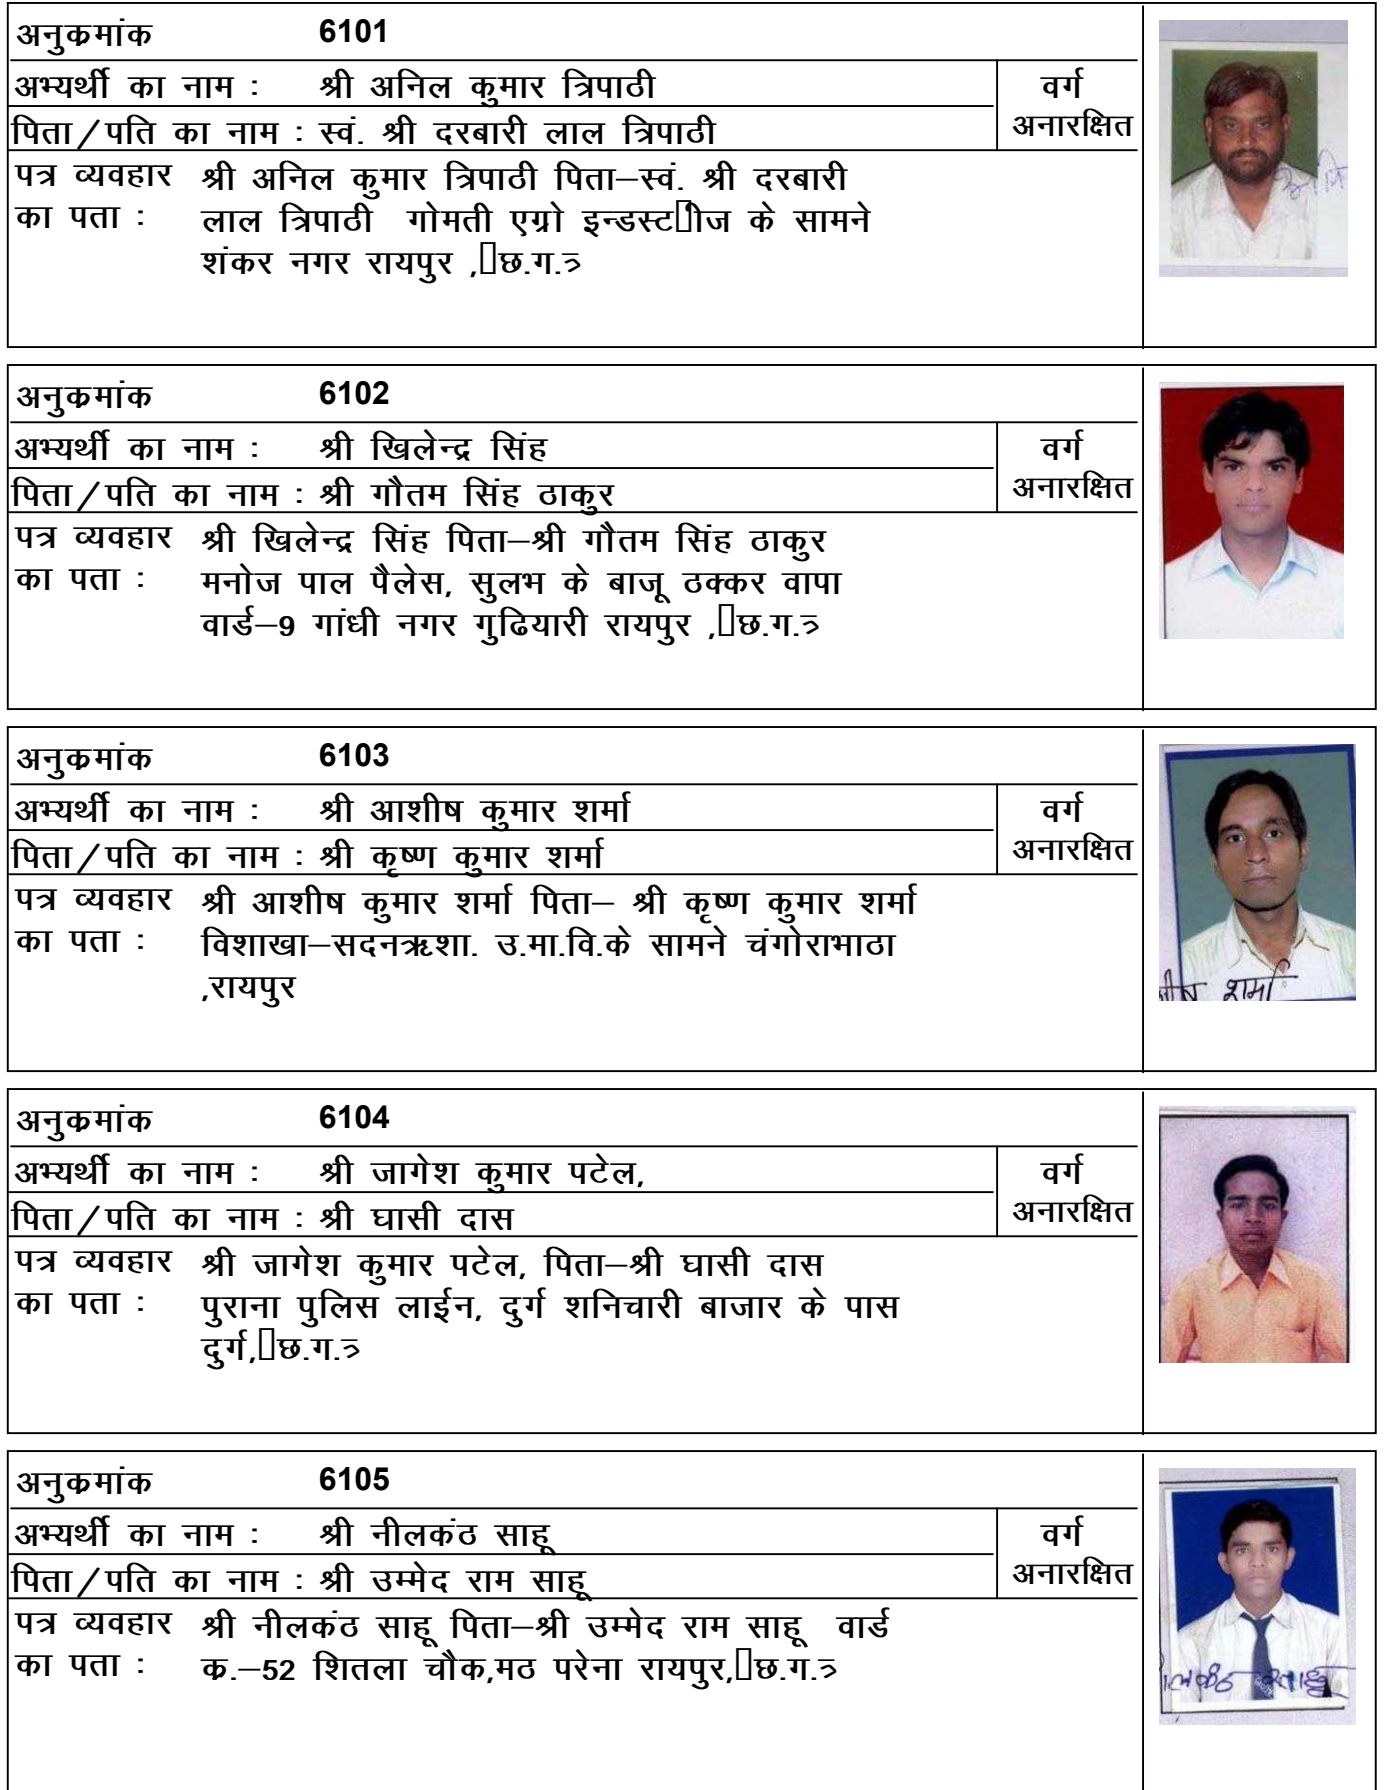 अनुक्रमांक 6101
अभ्यर्थी का नाम : श्री अनिल कुमार त्रिपाठी वर्ग
पिता/पति का नाम : स्वं. श्री दरबारी लाल त्रिपाठी अनारक्षित
पत्र व्यवहार श्री अनिल कुमार त्रिपाठी पिता–स्वं. श्री दरबारी
का पता : लाल त्रिपाठी गोमती एग्रो इन्डस्ट▯ीज के सामने
शंकर नगर रायपुर ,▯छ.ग.त्र
अनुक्रमांक 6102
अभ्यर्थी का नाम : श्री खिलेन्द्र सिंह वर्ग
पिता/पति का नाम : श्री गौतम सिंह ठाकुर अनारक्षित
पत्र व्यवहार श्री खिलेन्द्र सिंह पिता–श्री गौतम सिंह ठाकुर
का पता : मनोज पाल पैलेस, सुलभ के बाजू ठक्कर वापा
वार्ड–9 गांधी नगर गुढियारी रायपुर ,▯छ.ग.त्र
अनुक्रमांक 6103
अभ्यर्थी का नाम : श्री आशीष कुमार शर्मा वर्ग
पिता/पति का नाम : श्री कृष्ण कुमार शर्मा अनारक्षित
पत्र व्यवहार श्री आशीष कुमार शर्मा पिता– श्री कृष्ण कुमार शर्मा
का पता : विशाखा–सदनऋशा. उ.मा.वि.के सामने चंगोराभाठा
,रायपुर
शर्मा
अनुक्रमांक 6104
अभ्यर्थी का नाम : श्री जागेश कुमार पटेल, वर्ग
पिता/पति का नाम : श्री घासी दास अनारक्षित
पत्र व्यवहार श्री जागेश कुमार पटेल, पिता–श्री घासी दास
का पता : पुराना पुलिस लाईन, दुर्ग शनिचारी बाजार के पास
दुर्ग,▯छ.ग.त्र
अनुक्रमांक 6105
अभ्यर्थी का नाम : श्री नीलकंठ साहू वर्ग
पिता/पति का नाम : श्री उम्मेद राम साहू अनारक्षित
पत्र व्यवहार श्री नीलकंठ साहू पिता–श्री उम्मेद राम साहू वार्ड
का पता : क्र.–52 शितला चौक,मठ परेना रायपुर,▯छ.ग.त्र
साहू